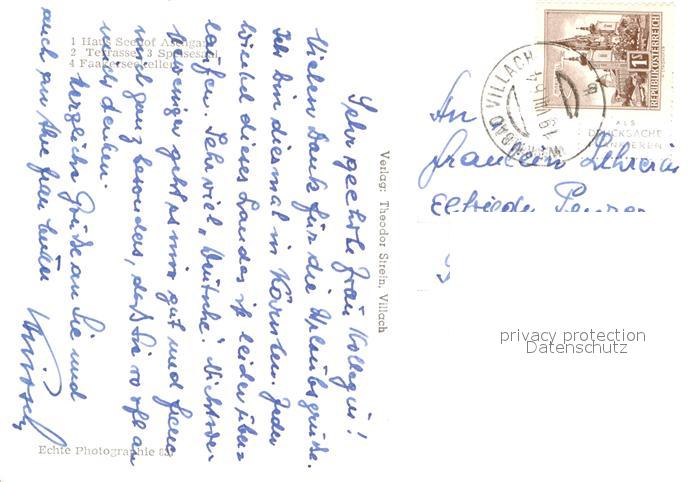 1 Haus Seehof Aschgan
2 Terrasse 3 Speisesaal
4 Faakerseekeller
Sehr geehrte Frau Kollegin!
Vielen Dank für die Urlaubsgrüße.
Ich bin diesmal in Kärnten. Jeder
Winkel dieses Landes ist leider über-
laufen. Sehr viel „Deutsche“. Nichtsde-
weniger geht es mir gut und freue
mich ganz besonders, daß Sie so oft an
uns denken.
Herzliche Grüße an Sie und
auch an Ihre Frau
Echte Photographie
Verlag: Theodor Strein, Villach
WARMBAD VILLACH
REPUBLIK ÖSTERREICH
1S
ALS
DRUCKSACHE
An
Fräulein Lehrerin
Elfriede
privacy protection
Datenschutz